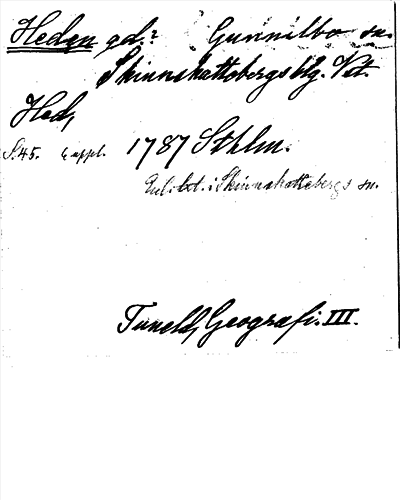 Heden gd.? Gunnilbo sn.
Skinnskattebergs blg. Vst.
Hed,
S.45. 6 uppl. 1787 Sthlm.
Enl. kt. i Skinnskattebergs sn.
Tuneld, Geografi. III.